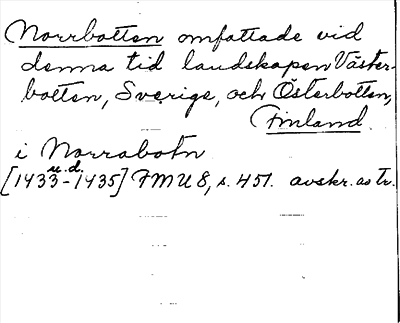 Norrbotten omfattade vid
denna tid landskapen Väster-
botten, Sverige, och Österbotten,
Finland.
i Norrabotn
u.d.
[1433-1435] FMU 8, s. 451. avskr. as tr.